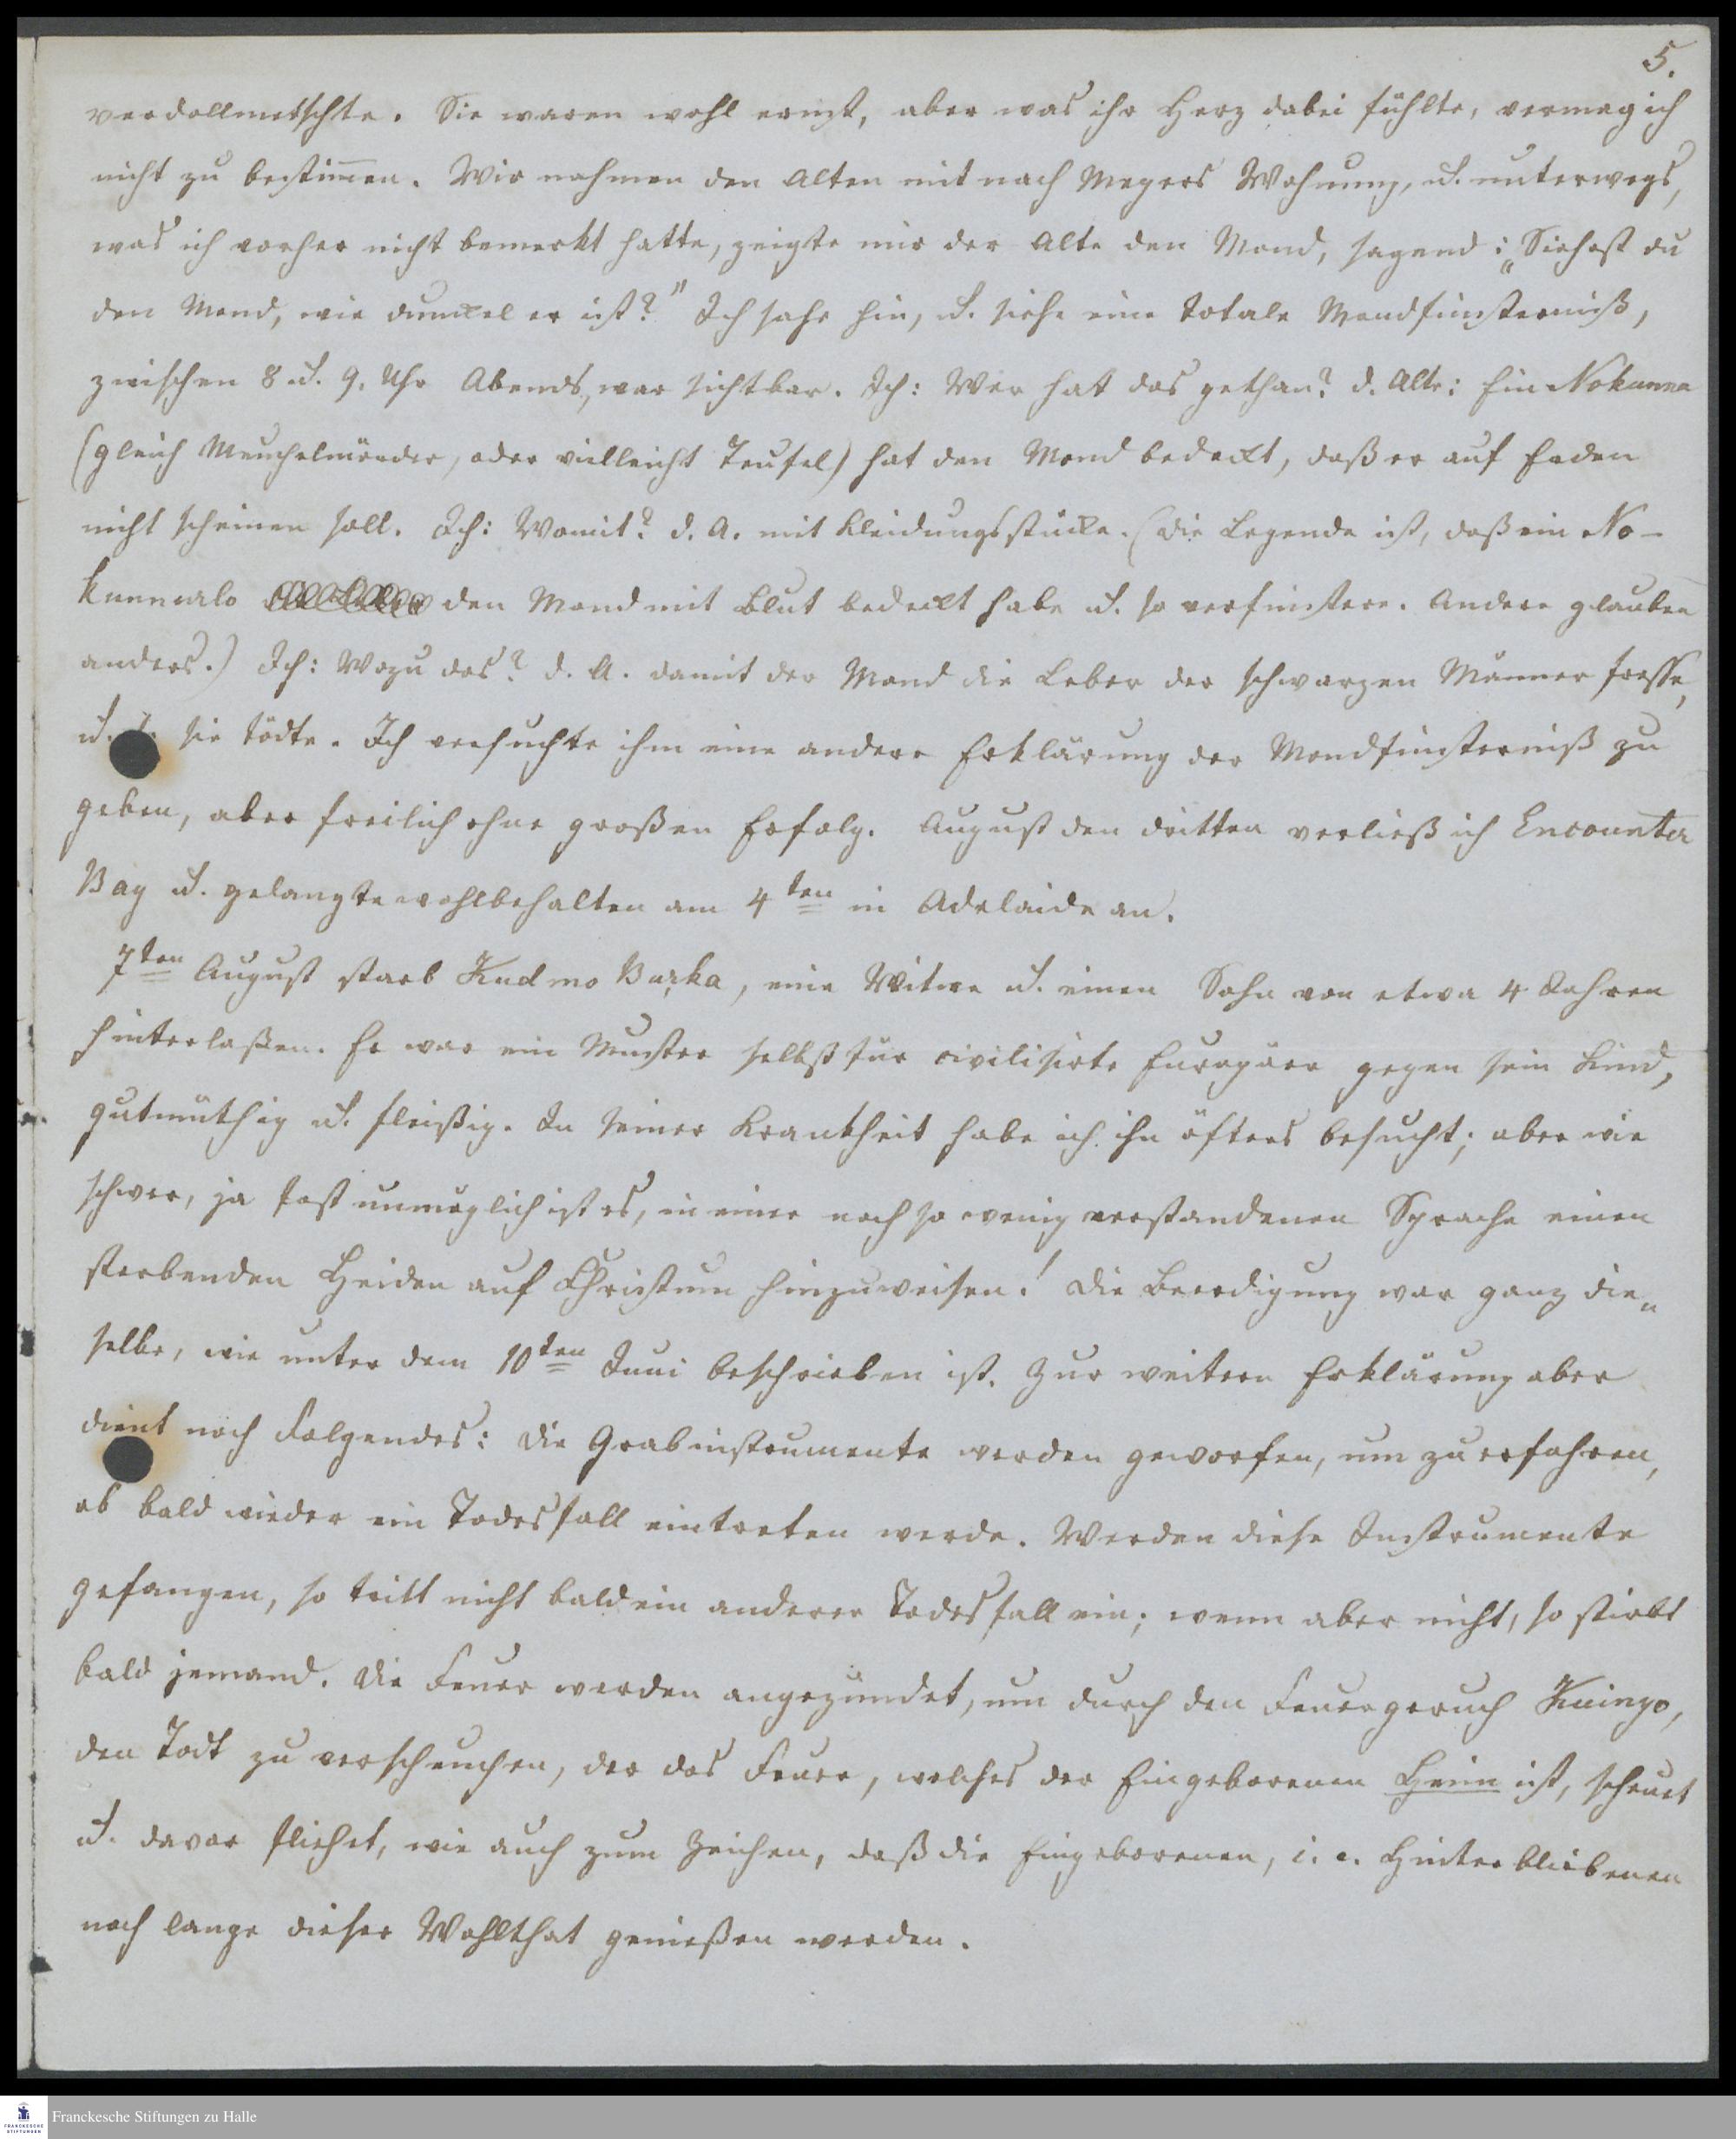 5.
verdollmetschte. Sie waren wohl ernst, aber was ihr Herz dabei fühlte, vermag ich
nicht zu bestim̅en. Wir nahmen den Alten mit nach Meyers Wohnung, u. unterwegs,
was ich vorher nicht bemerkt hatte, zeigte mir der Alte den Mond, sagend: „Siehest du
den Mond, wie dunkel er ist?" Ich sahe hin, u. siehe eine totale Mondfinsterniß,
zwischen 8 u. 9. Uhr Abends, war sichtbar. Ich: Wer hat das gethan? d. Alte: Ein Nokunna
(gleich Meuchelmörder, oder vielleicht Teufel) hat den Mond bedeckt, daß er auf Erden
nicht scheinen soll. Ich: Womit? d. A. mit Kleidungsstücke. (Die Legende ist, daß ein No-
kunnurlo den Mond mit Blut bedeckt habe u. so verfinstere. Andere glauben
anders.) Ich: Wozu das? d. A. damit der Mond die Leber der schwarzen Männer fresse,
u. sie tödte. Ich versuchte ihm eine andere Erklärung der Mondfinsterniß zu
geben, aber freilich ohne großen Erfolg. August den dritten verließ ich Encounter
Bay u. gelangte wohlbehalten am 4ten in Adelaide an.
7ten August starb Kudmo Burka, eine Witwe u. einen Sohn von etwa 4 Jahren
hinterlaßen. Er war ein Muster selbst für civilisirte Europäer gegen sein Kind,
gutmüthig u. fleißig. In seiner Krankheit habe ich ihn öfters besucht; aber wie
schwer, ja fast unmöglich ist es, in einer noch so wenig verstandenen Sprache einen
sterbenden Heiden auf Christum hinzuweisen! Die Beerdigung war ganz die„
selbe, wie unter dem 10ten Juni beschrieben ist. Zur weitern Erklärung aber
dient noch Folgendes: Die Grabinstrumente werden geworfen, um zu erfahren,
ob bald wieder ein Todesfall eintreten werde. Werden diese Instrumente
gefangen, so tritt nicht bald ein anderer Todesfall ein; wenn aber nicht, so stirbt
bald jemand. Die Feuer werden angezündet, um durch den Feuergeruch Kuinyo,
den Todt zu verscheuchen, der das Feuer, welches der Eingeborenen Heim ist, scheuet
u. davor fliehet, wie auch zum Zeichen, daß die Eingeborenen, i. e. Hinterbliebenen
noch lange dieser Wohlthat genießen werden.
Franckesche Stiftungen zu Halle
FRANCKESCHE
STIFTUNGEN